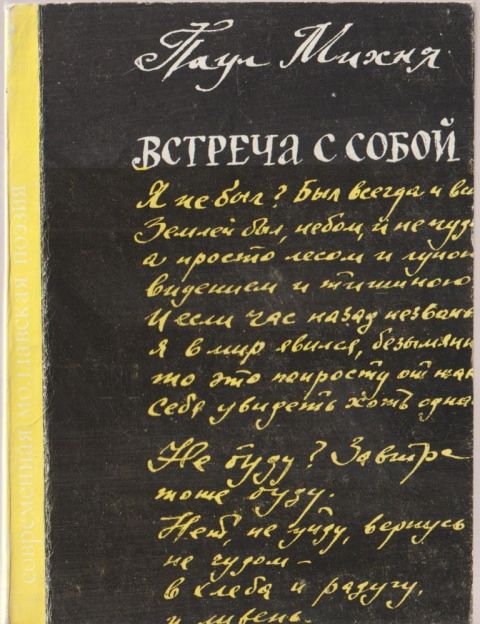 Паул Михня
ВСТРЕЧА С СОБОЙ
Я не был? Был всегда и
Землей был, небом, и не
а просто лесом и
видением и тишиною
И если час назад
я в мир явился,
то это попросту от
себя увидеть хоть
Не буду? Завтра
тоже буду.
Нет, не уйду, вернусь
не чудом –
в хлеба и радугу,
и ливень.
современная молдавская поэзия